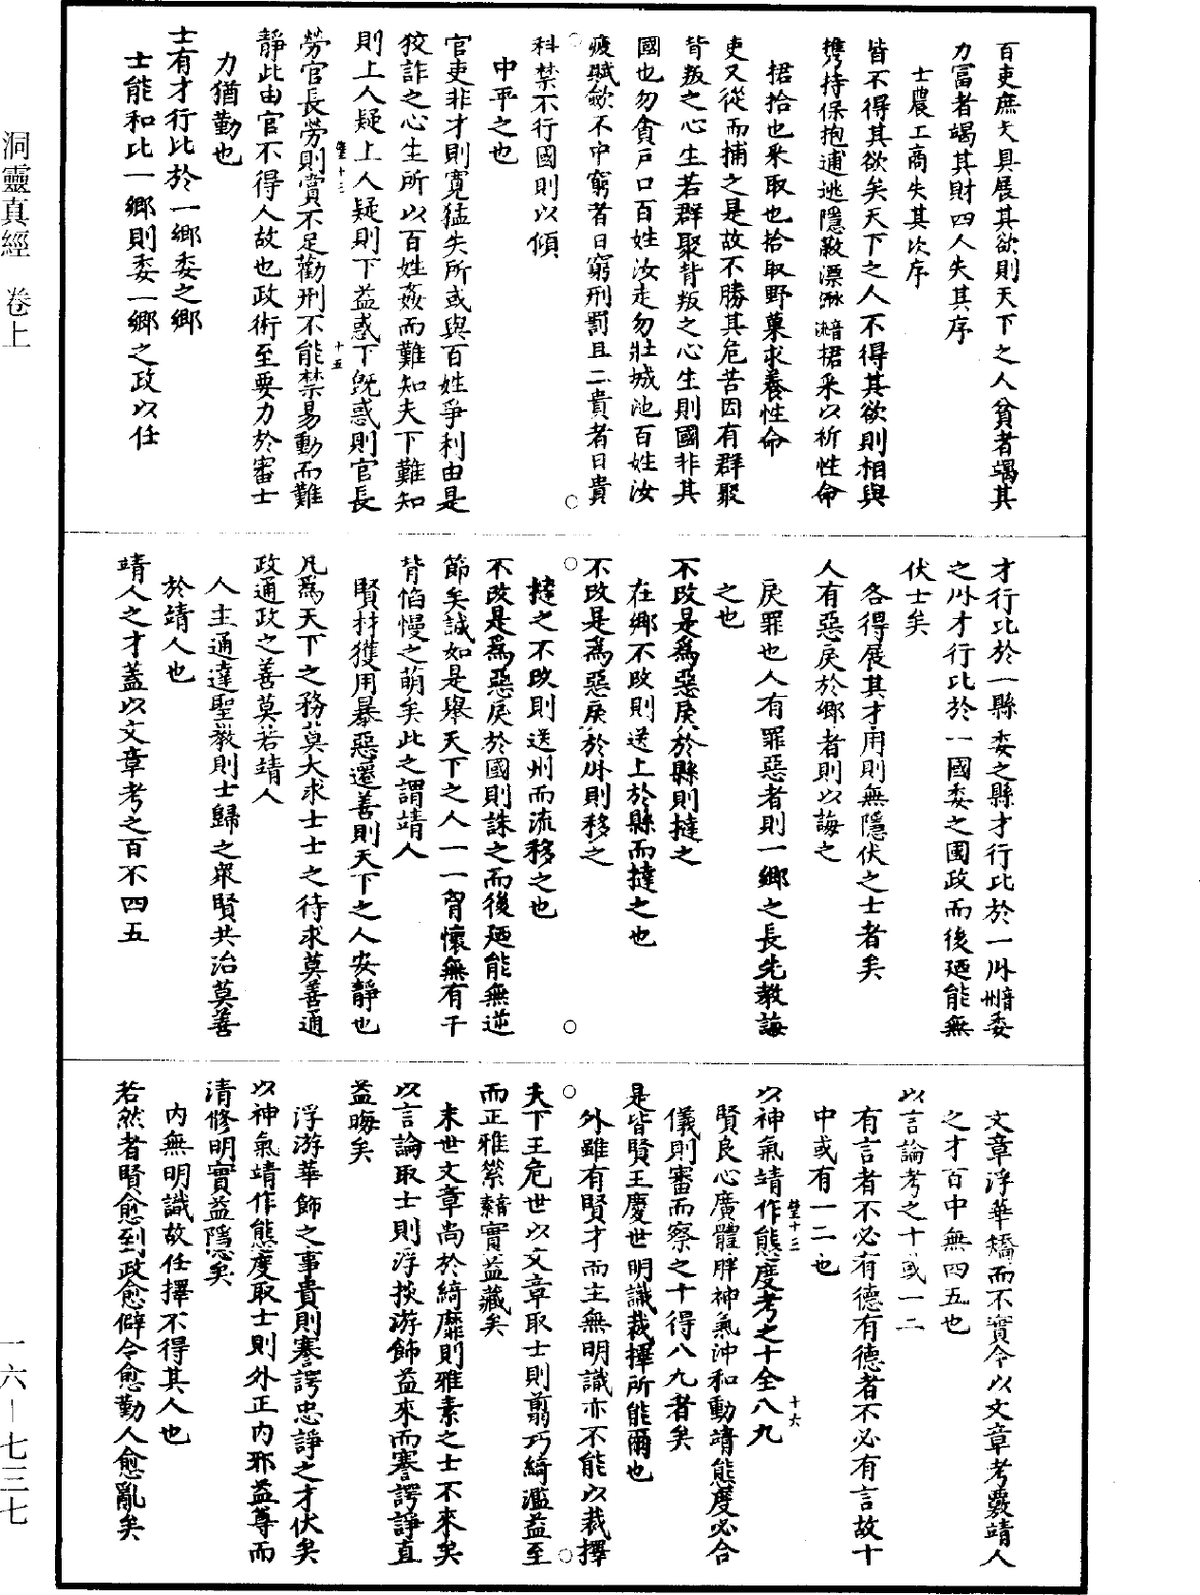 百吏庶夫具展其欲則天下之人貧者竭其
力富者竭其財四人失其序
士農工商失其次序
皆不得其欲矣天下之人不得其欲則相與
攜持保抱逋逃隱蔽漂淋音捃采以祈性命
捃拾也采取也拾取野菓求養性命
吏又從而捕之是故不勝其危苦因有群聚
背叛之心生若群聚背叛之心生則國非其
國也勿貪戶口百姓汝走勿壯城池百姓汝
疲賦斂不中窮者日窮刑罰且二貴者日貴
科禁不行國則以傾
中平之也
官吏非才則寬猛失所或與百姓爭利由是
狡詐之心生所以百姓姦而難知夫下難知
則上人疑上人疑則下益惑下既惑則官長
勞官長勞則賞不足勸刑不能禁易動而難
靜此由官不得人故也政術至要力於審士
力猶勤也
士有才行比於一鄉委之鄉
士能和比一鄉則委一鄉之政以任
才行比於一縣委之縣才行比於一州音委
之州才行比於一國委之國政而後廼能無
伏士矣
各得展其才用則無隱伏之士者矣
人有惡戾於鄉者則以誨之
戾罪也人有罪惡者則一鄉之長先教誨
之也
不改是爲惡戾於縣則撻之
在鄉不改則送上於縣而撻之也
不改是爲惡戾於州則移之
撻之不改則送州而流移之也
不改是爲惡戾於國則誅之而後廼能無逆
節矣誠如是舉天下之人一一胷懷無有干
背慆慢之萌矣此之謂靖人
賢材獲用暴惡遷善則天下之人安靜也
凡爲天下之務莫大求士士之待求莫善通
政通政之善莫若靖人
人主通達聖教則士歸之衆賢共治莫善
於靖人也
靖人之才蓋以文章考之百不四五
文章浮華矯而不實今以文章考覈靖人
之才百中無四五也
以言論考之十或一二
有言者不必有德有德者不必有言故十
中或有一二也
以神氣靖作態度考之十全八九
賢良心廣體胖神氣沖和動靖態度必合
儀則審而察之十得八九者矣
是皆賢王慶世明識裁擇所能爾也
外雖有賢才而主無明識亦不能以裁擇
夫下王危世以文章取士則翦巧綺濫益至
而正雅縈音實益藏矣
末世文章尚於綺靡則雅素之士不來矣
以言論取士則浮掞游飾益來而謇諤諍直
益晦矣
浮游華飾之事貴則謇諤忠諍之才伏矣
以神氣靖作態度取士則外正内邪益尊而
清修明實益隱矣
内無明識故任擇不得其人也
若然者賢愈到政愈僻令愈勤人愈亂矣
洞靈真經　卷上
一六—七三七
十五
十六